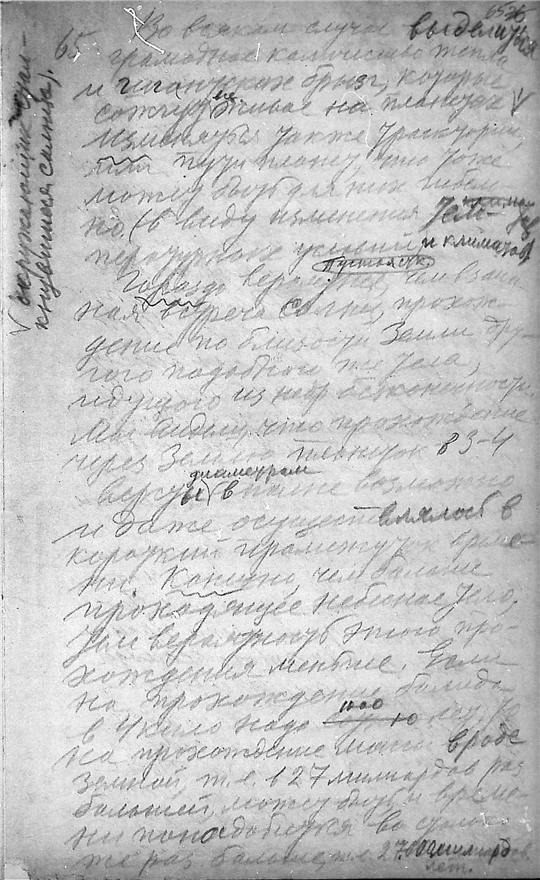 65
Во всяком случае выделится
громадное количество тепла
и гигантских брызг, которые
сожгут все живое на планетах
Изменятся также траектории,
или пути планет, что тоже
может быть для них гибель-
но (в виду изменения тем-
пературных условий и климатов
Гораздо вероятнее, чем взаим-
ная встреча солнц, прохож-
дение по близости Земли дру-
гого подобного же тела,
идущего из недр бесконечности.
Мы видели, что прохождение
через Землю планеток в 3-4
диаметром
версты вполне возможно
и даже осуществлялось в
короткий промежуток време-
ни. Конечно, чем больше
проходящее небесное тело,
тем вероятность этого про-
хождения меньше. Если
на прохождение болида
в 4 кило надо 1000 лет,
на прохождение массы вроде
Земной, т.е. 127 милиардов раз
большей, может быть и време-
ни понадобится во столько
же раз больше, т.е. милиардов
лет.
окружающих